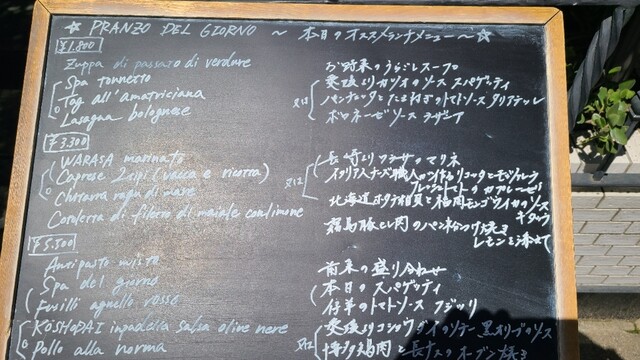 ☆ PRANZO DEL GIORNO ～ 本日のオススメランチメニュー ～☆
¥1.800
Zuppa di passato di verdure お野菜のうらごしスープ
Spa tonnetto 愛媛よりカツオのソース スパゲッティ
o Tag all'amatriciana 又は パンチェッタとたまねぎのトマトソース タリアテッレ
o Lasagna bolognese ボロネーゼソース ラザニア
¥3.300
WARASA marinato 長崎よりワラサのマリネ
o Caprese 2tipi (vacca e ricotta) 又は イタリア人チーズ職人の作るリコッタとモッツァレラ
フレッシュトマトの カプレーゼ
Chitarra ragù di mare 北海道ホタテ 福岡モンゴウイカのソース
キタッラ
Cotoletta di filetto di maiale con limone 霧島豚ヒレ肉のパン粉つけ焼き
レモンを添えて
¥5.500
Antipasto misto 前菜の盛り合わせ
Spa del giorno 本日の スパゲッティ
Fusilli agnello rosso 仔羊のトマトソース フジッリ
KOSHODAI in padella salsa olive nere 愛媛よりコショウダイのソテー 黒オリーブのソース
o Pollo alla norma 又は 博多鶏肉と長ナス オーブン焼き